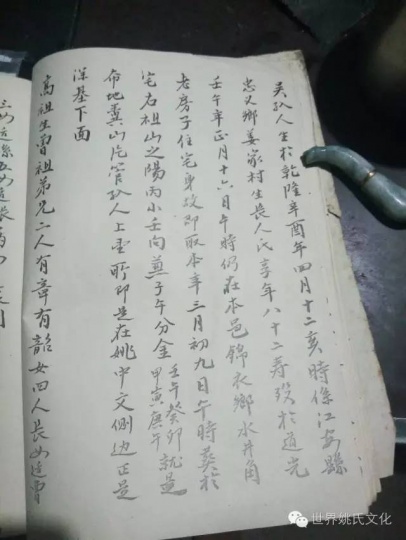 吴孔人生於乾隆辛酉年四月十二亥時係江安縣
忠义鄉姜家村生長人氏享年八十二寿殁於道光
壬午年正月十六日午時仍在本邑錦衣鄉水井角
老房子住宅身故即取本年三月初九日午時葬於
宅右祖山之陽丙小壬向兼子午分金壬午癸卯甲寅庚午就是
命地糞山片管孔人上的即是在姚中文側边正是
深基下面
高祖生曾祖弟兄二人有章有韶女四人長女适曾
世界姚氏文化